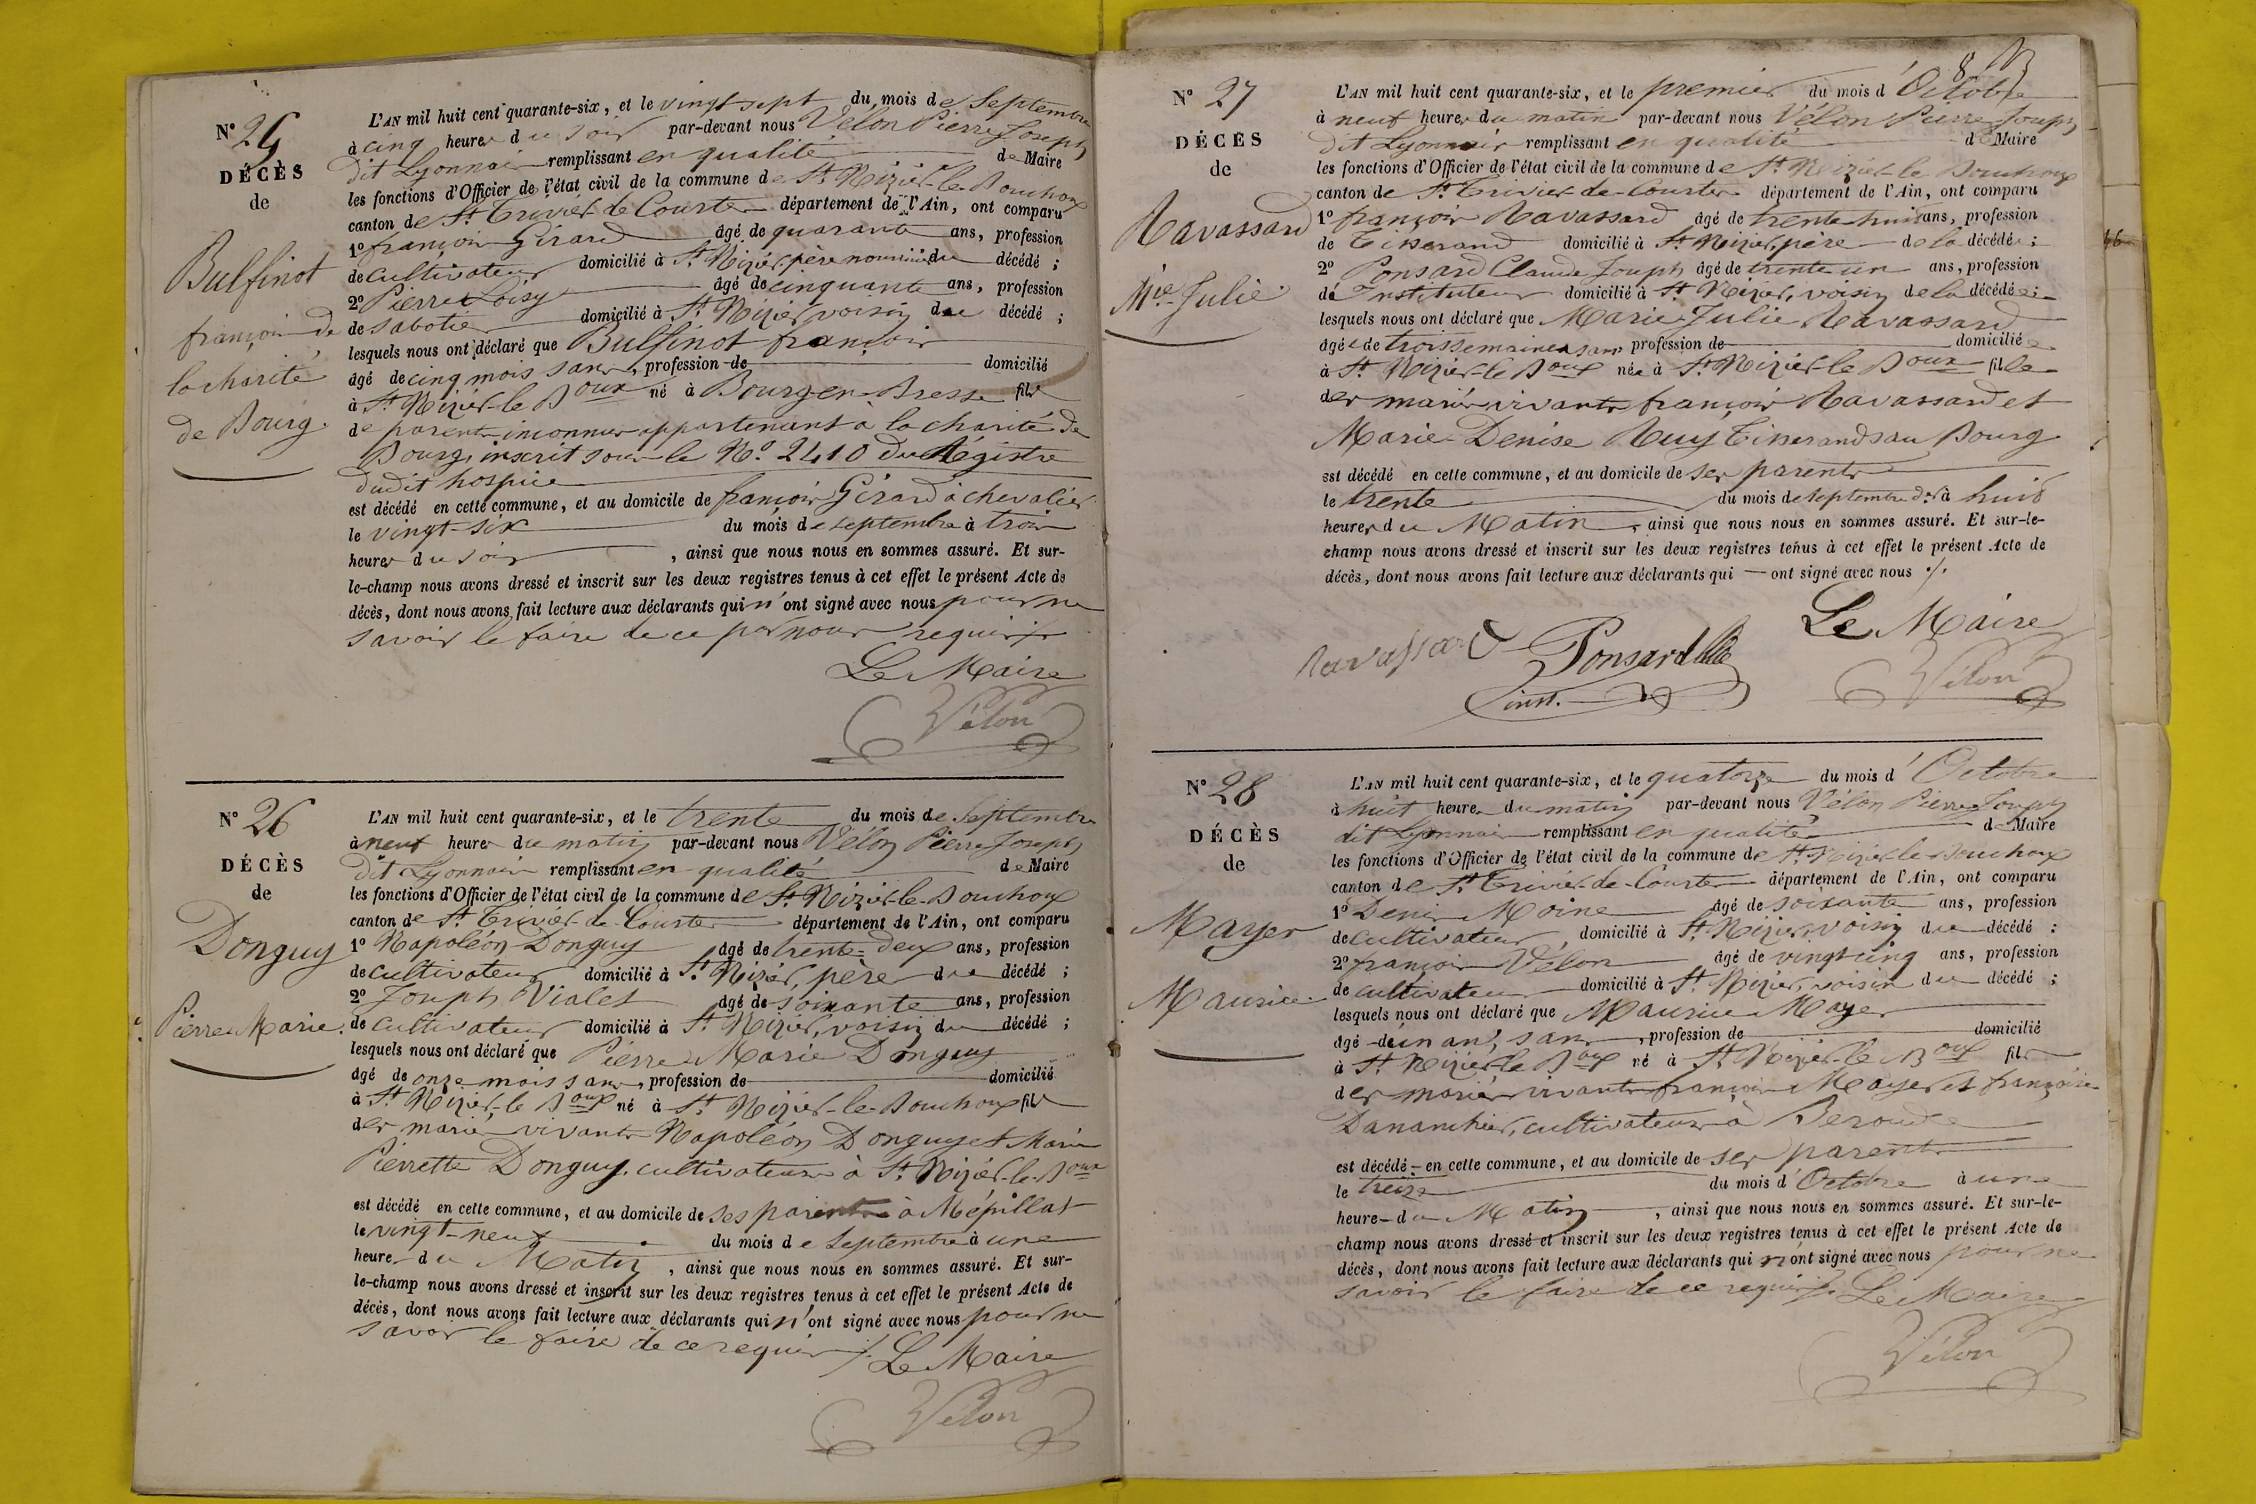 N° 25
DÉCÈS
de
Bulfinot
françois de
la charité
de Bourg.
L'AN mil huit cent quarante-six, et le vingt sept du mois de Septembre
à cinq heures du soir par-devant nous Vélon Pierre Joseph
dit Lyonnais remplissant en qualité de Maire
les fonctions d'Officier de l'état civil de la commune de St. Nizier-le-Bouchoux
canton de St. Trivier de Courtes département de l'Ain, ont comparu
1° françois Girard âgé de quarante ans, profession
de cultivateur domicilié à St. Nizier, père nourricier du décédé ;
2° Pierre Loisy âgé de cinquante ans, profession
de sabotier domicilié à St. Nizier, voisin du décédé ;
lesquels nous ont déclaré que Bulfinot françois
âgé de cinq mois sans, profession de domicilié
à St. Nizier-le-Boux né à Bourg-en-Bresse fils
de parents inconnus appartenant à la charité de
Bourg, inscrit sous le N°. 2410 du Régistre
dudit hospice
est décédé en cette commune, et au domicile de françois Girard à chevalier
le vingt-six du mois de septembre à trois
heures du soir, ainsi que nous nous en sommes assuré. Et sur-
le-champ nous avons dressé et inscrit sur les deux registres tenus à cet effet le présent Acte de
décès, dont nous avons fait lecture aux déclarants qui n'ont signé avec nous pour ne
savoir le faire de ce par nous requis ./.
Le Maire
Vélon
N° 26
DÉCÈS
de
Donguy
Pierre Marie.
L'AN mil huit cent quarante-six, et le trente du mois de Septembre
à neuf heures du matin par-devant nous Vélon Pierre Joseph
dit Lyonnais remplissant en qualité de Maire
les fonctions d'Officier de l'état civil de la commune de St. Nizier-le-Bouchoux
canton de St. Trivier-de-Courtes département de l'Ain, ont comparu
1° Napoléon Donguy âgé de trente-deux ans, profession
de cultivateur domicilié à St. Nizier, père du décédé ;
2° Joseph Vialet âgé de soixante ans, profession
de cultivateur domicilié à St. Nizier, voisin du décédé ;
lesquels nous ont déclaré que Pierre Marie Donguy
âgé de onze mois sans, profession de domicilié
à St. Nizier-le Boux né à St. Nizier-le-Bouchoux fils
des mariés vivants Napoléon Donguy et Marie
Pierrette Donguy, cultivateurs à St. Nizier-le-Boux
est décédé en cette commune, et au domicile de ses parents à Mépillat
le vingt-neuf du mois de Septembre à une
heure du Matin, ainsi que nous nous en sommes assuré. Et sur-
le-champ nous avons dressé et inscrit sur les deux registres tenus à cet effet le présent Acte de
décès, dont nous avons fait lecture aux déclarants qui n'ont signé avec nous pour ne
savoir le faire de ce requis ./. Le Maire
Vélon
8
N° 27
DÉCÈS
de
Ravassard
Mie. Julie.
L'AN mil huit cent quarante-six, et le premier du mois d'Octobre
à neuf heures du matin par-devant nous Vélon Pierre Joseph
dit Lyonnais remplissant en qualité de Maire
les fonctions d'Officier de l'état civil de la commune de St. Nizier-le Bouchoux
canton de St. Trivier-de-Courtes département de l'Ain, ont comparu
1° françois Ravassard âgé de trente-huit ans, profession
de Tisserand domicilié à St. Nizier, père de la décédée ;
2° Ponsard Claude Joseph âgé de trente-un ans, profession
d'Instituteur domicilié à St. Nizier, voisin de la décédée ;
lesquels nous ont déclaré que Marie Julie Ravassard
âgée de trois semaines sans profession de domiciliée
à St. Nizier-le Boux née à St. Nizier-le Boux fille
des mariés vivants françois Ravassard et
Marie-Denise Ruy Tisserands au Bourg
est décédé en cette commune, et au domicile de ses parents
le trente du mois de septembre dr. à huit
heures du Matin, ainsi que nous nous en sommes assuré. Et sur-le-
champ nous avons dressé et inscrit sur les deux registres tenus à cet effet le présent Acte de
décès, dont nous avons fait lecture aux déclarants qui ont signé avec nous ./.
Le Maire
ravassard Ponsard
inst.
Vélon
N° 28
DÉCÈS
de
Mayer
Maurice
L'AN mil huit cent quarante-six, et le quatorze du mois d'Octobre
à huit heures du matin par-devant nous Vélon Pierre Joseph
dit Lyonnais remplissant en qualité de Maire
les fonctions d'Officier de l'état civil de la commune de St. Nizier-le-Bouchoux
canton de St. Trivier-de-Courtes département de l'Ain, ont comparu
1° Denis Moine âgé de soixante ans, profession
de cultivateur domicilié à St. Nizier, voisin du décédé ;
2° françois Vélon âgé de vingt cinq ans, profession
de cultivateur domicilié à St. Nizier, voisin du décédé ;
lesquels nous ont déclaré que Maurice Mayer
âgé d'un an, sans, profession de domicilié
à St. Nizier-le Boux né à St. Nizier-le Boux fils
des mariés vivants françois Mayer et françoise
Dananchier, cultivateurs à
est décédé en cette commune, et au domicile de ses parents
le treize du mois d'Octobre à une
heure du Matin, ainsi que nous nous en sommes assuré. Et sur-le-
champ nous avons dressé et inscrit sur les deux registres tenus à cet effet le présent Acte de
décès, dont nous avons fait lecture aux déclarants qui n'ont signé avec nous pour ne
savoir le faire de ce requis ./. Le Maire
Vélon